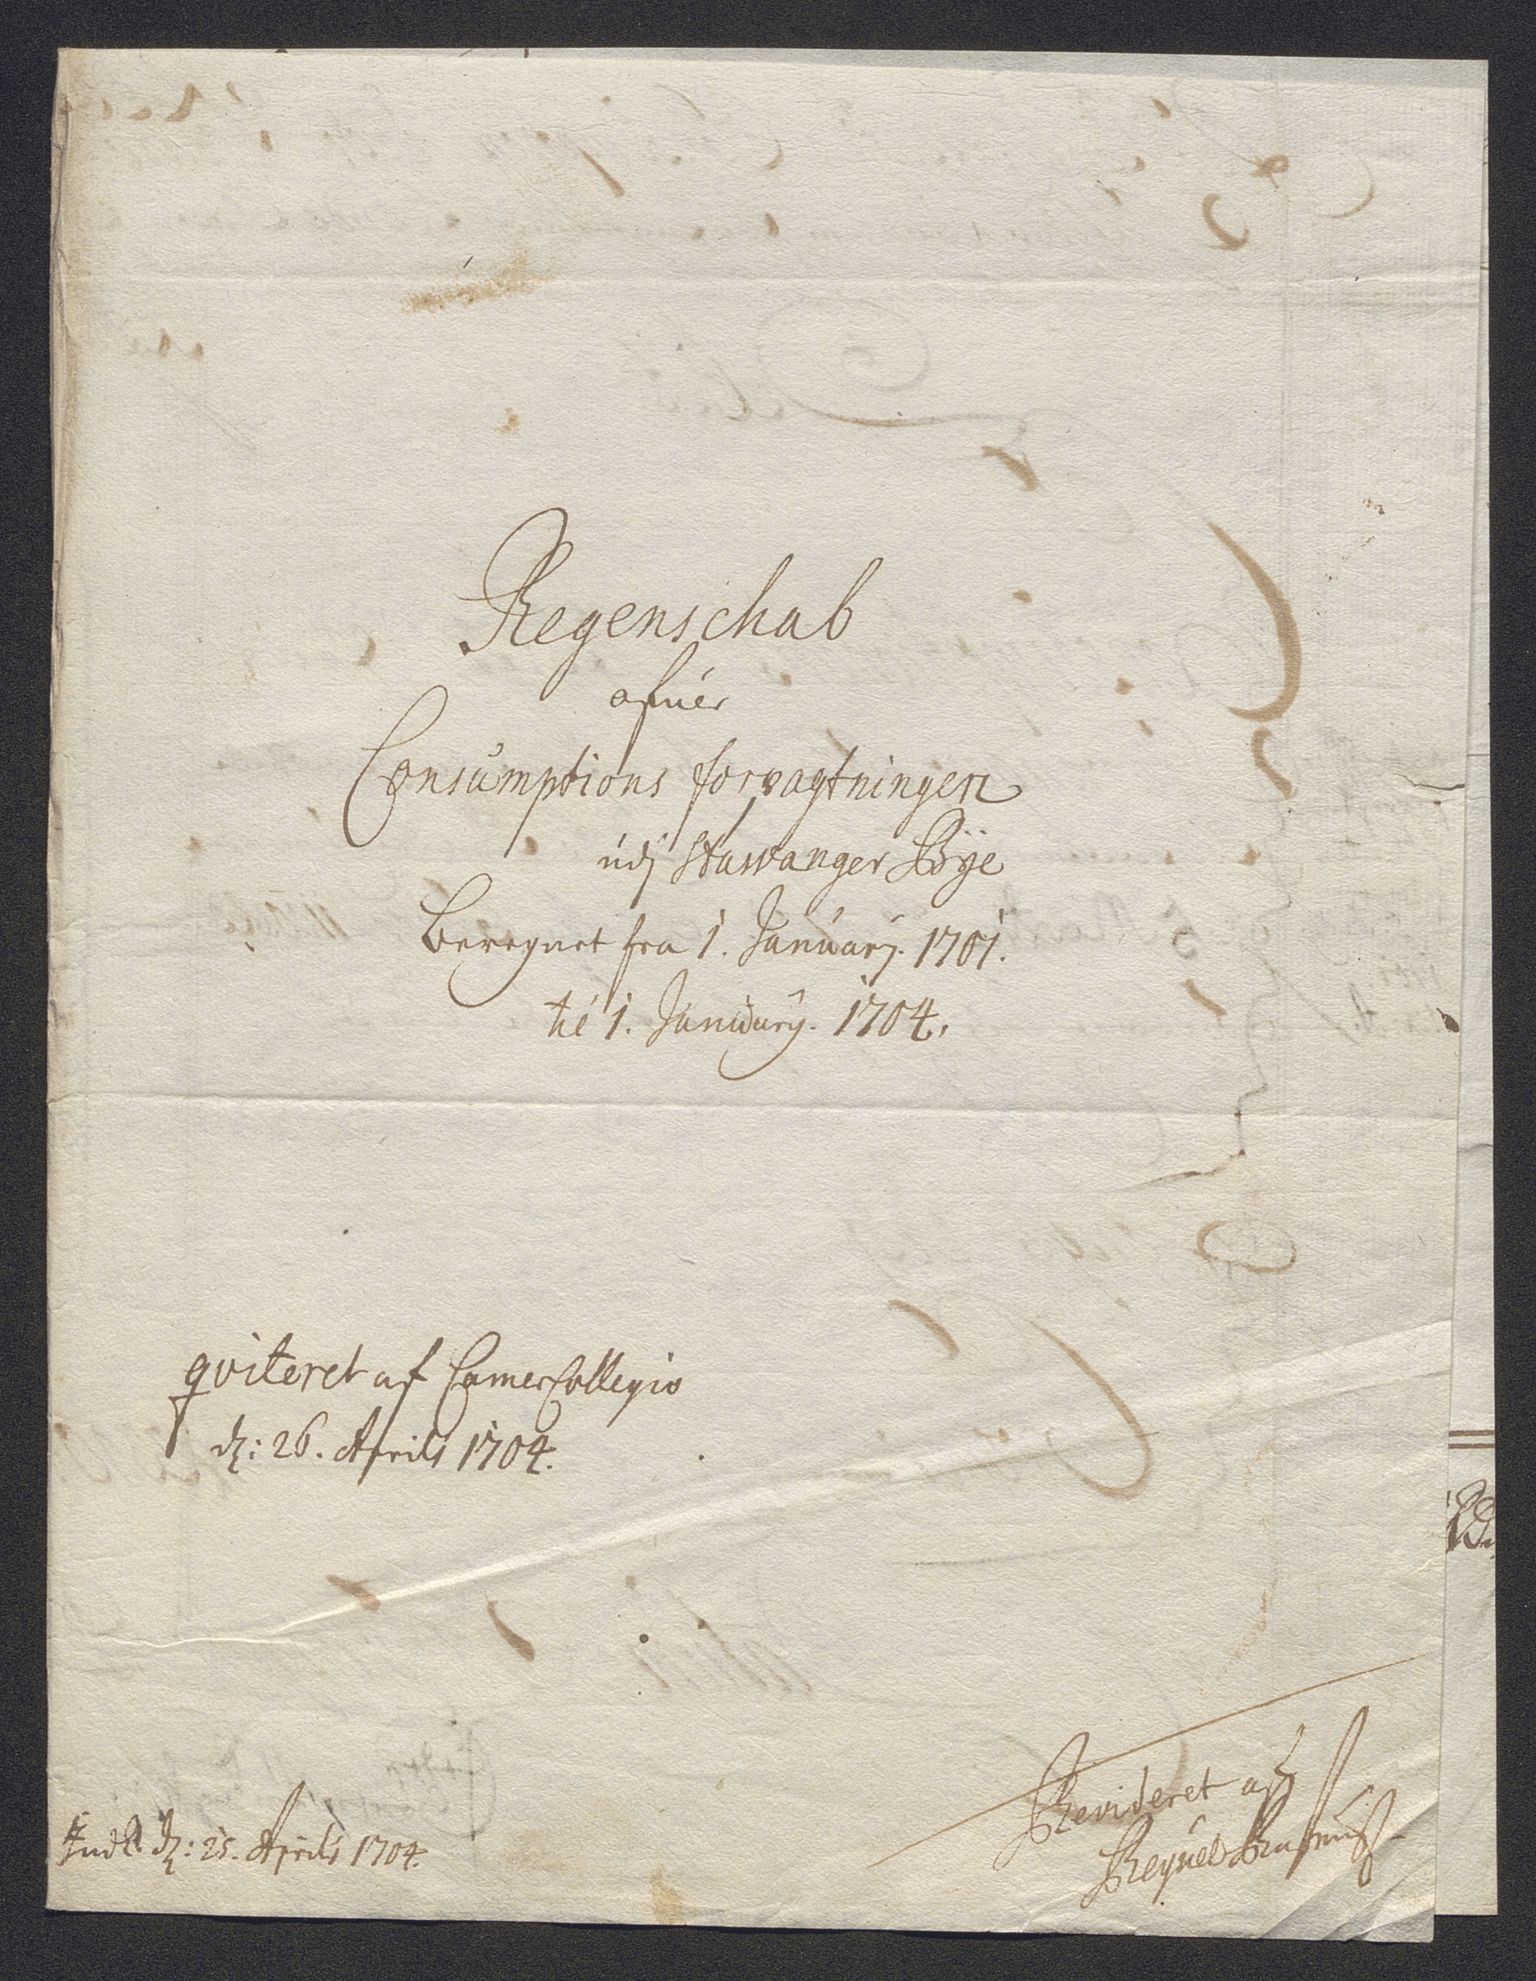 Regenschab
ofuer
Consumptions forpagtningen
udj Stawanger Bÿe
Beregnet fra 1. Januarj. 1701.
til 1. Januarÿ. 1704.
qviteret af CamerCollegio
dn: 26. Aprilis 1704.
Indl. dn: 25. Aprilis 1704.
Revideret af